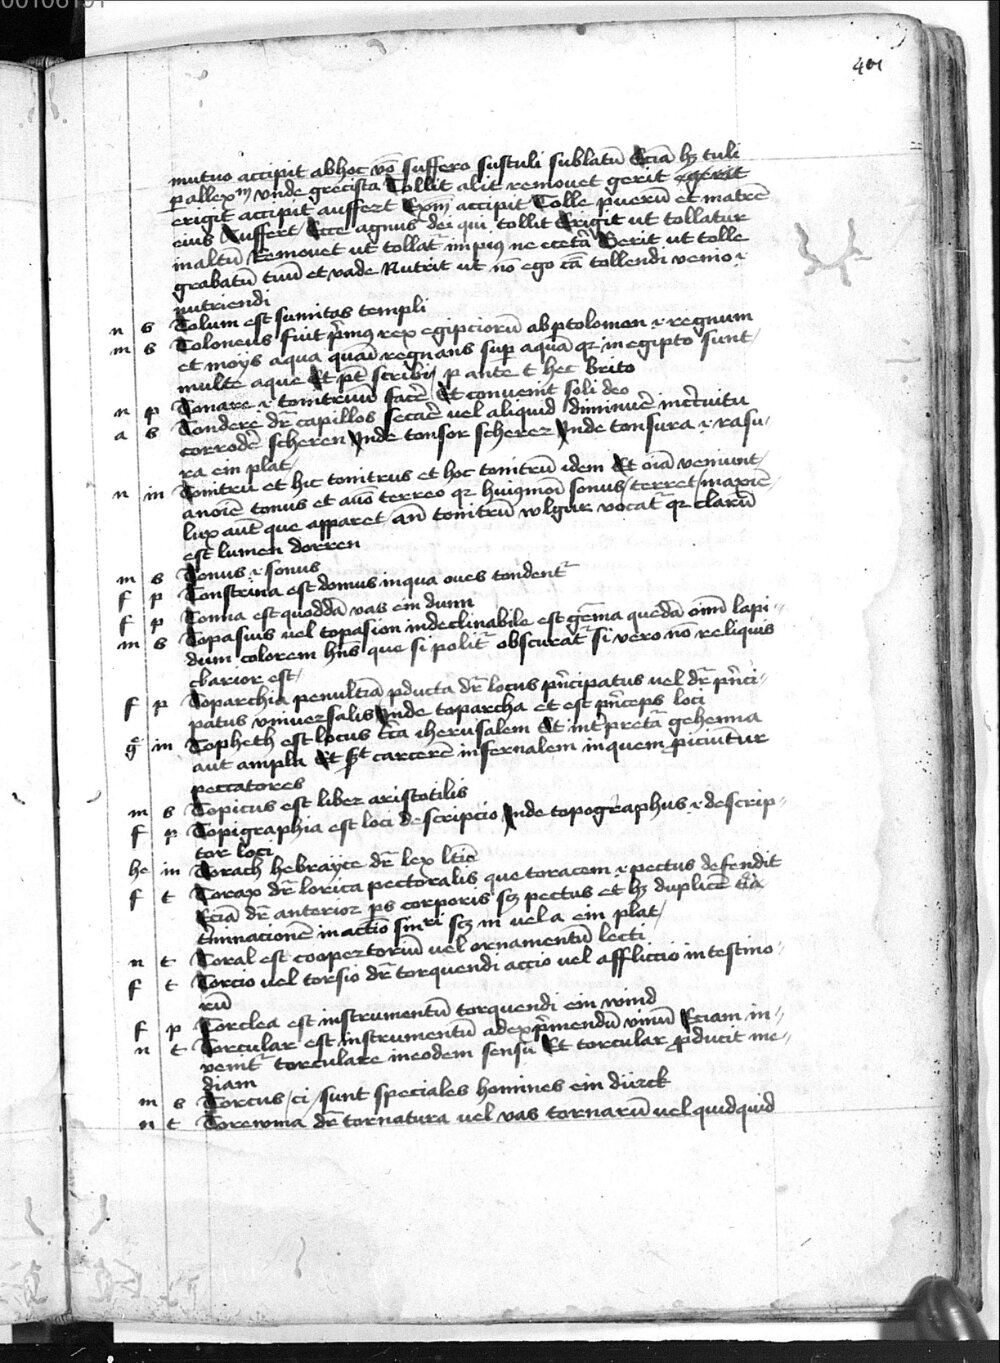 00106191
401
mutuo accipit abhoc vō suffero sustuli sublatū Eciā hȝ tuli
ꝑ allexm vnde grecista Tollit alit remouet gerit egerit
erigit accipit auffert Exm̄ accipit Tolle puerū et matrē
eius Auffert Ecce agnus dei qui tollit Erigit ut tollatur
inaltū Remouet ut tollat᷑ impiꝰ ne Gerit ut tolle
grabatū tuū et vade Nutrit ut nō ego cā tollendi venio .i.
nutriendi
n s Tolum est sumitas templi
m s Toloneus fuit p̄mꝰ rex egipciorū ab ptolomon .i. regnum
et moys aqua quasi regnans suꝑ aquā qꝛ in egipto sunt
multe aque Et pt̄ scribi p ante t hec Brito
n p Tonare .i. tonitruū facē Et convenit soli deo
a s Tondere dr̄ capillos secare vel aliquid diminuē incircuitu
corrodē scheren Inde tonsor scherer Inde tonsura .i. rasu-
ra ein plat
n in Tonitru et hic tonitrus et hoc tonitrū idem Et oīa veniunt
anoīe tonus et terreo qꝛ huiꝰmōi sonus terret maxīe
lux autē que apparet an̄ tonitrū wlgar vocat᷑ qꝛ clarū
est lumen dorren
m s Tonus .i. sonus
f p Tonstrina est domus inqua oues tondent᷑
f p Tonna est quoddā vas ein dunn
m s Topasius vel topasion indeclinabile est gēma quedā oīm lapi-
dum colorem hn̄s que si polit᷑ obscurat᷑ si vero nō reliquis
clarior est
f p Toparchia penultīa ꝓducta dr̄ locus pn̄cipatus vel dr̄ pn̄ci-
patus vniuersalis Inde toparcha et est pn̄ceps loci
g in Topheth est locus iherusalem Et int᷑pretā gehenna
aut ampla Et carcerē infernalem inquem ꝓiciūtur
peccatores
m s Topicus est liber aristotilis
f p Topigraphia est loci descripcio Inde topographus .i. descrip-
tor loci
he in Torach hebrayce dr̄ lex
f t Torax dr̄ lorica pectoralis que toracem .i. pectus defendit
Eciā dr̄ anterior ps corporis scȝ pectus et hȝ duplicē
t᷑minacionē in actīo sinri scȝ in vel a ein plat
n t Toral est coopertoriū vel ornamentū lecti
f t Torcio vel torsio dr̄ torquendi accio vel affliccio intestino-
rū
f p Torclea est instrumentū torquendi ein wind
n t Torcular est instrumentū adexp̄mendū vinū Eciam in-
uenit᷑ torculare ineodem sensu Et torcular ꝓducit me-
diam
m s Torcus ci sunt speciales homines ein dürck
n t Torewma dr̄ tornatura vel vas tornarū vel quidquid